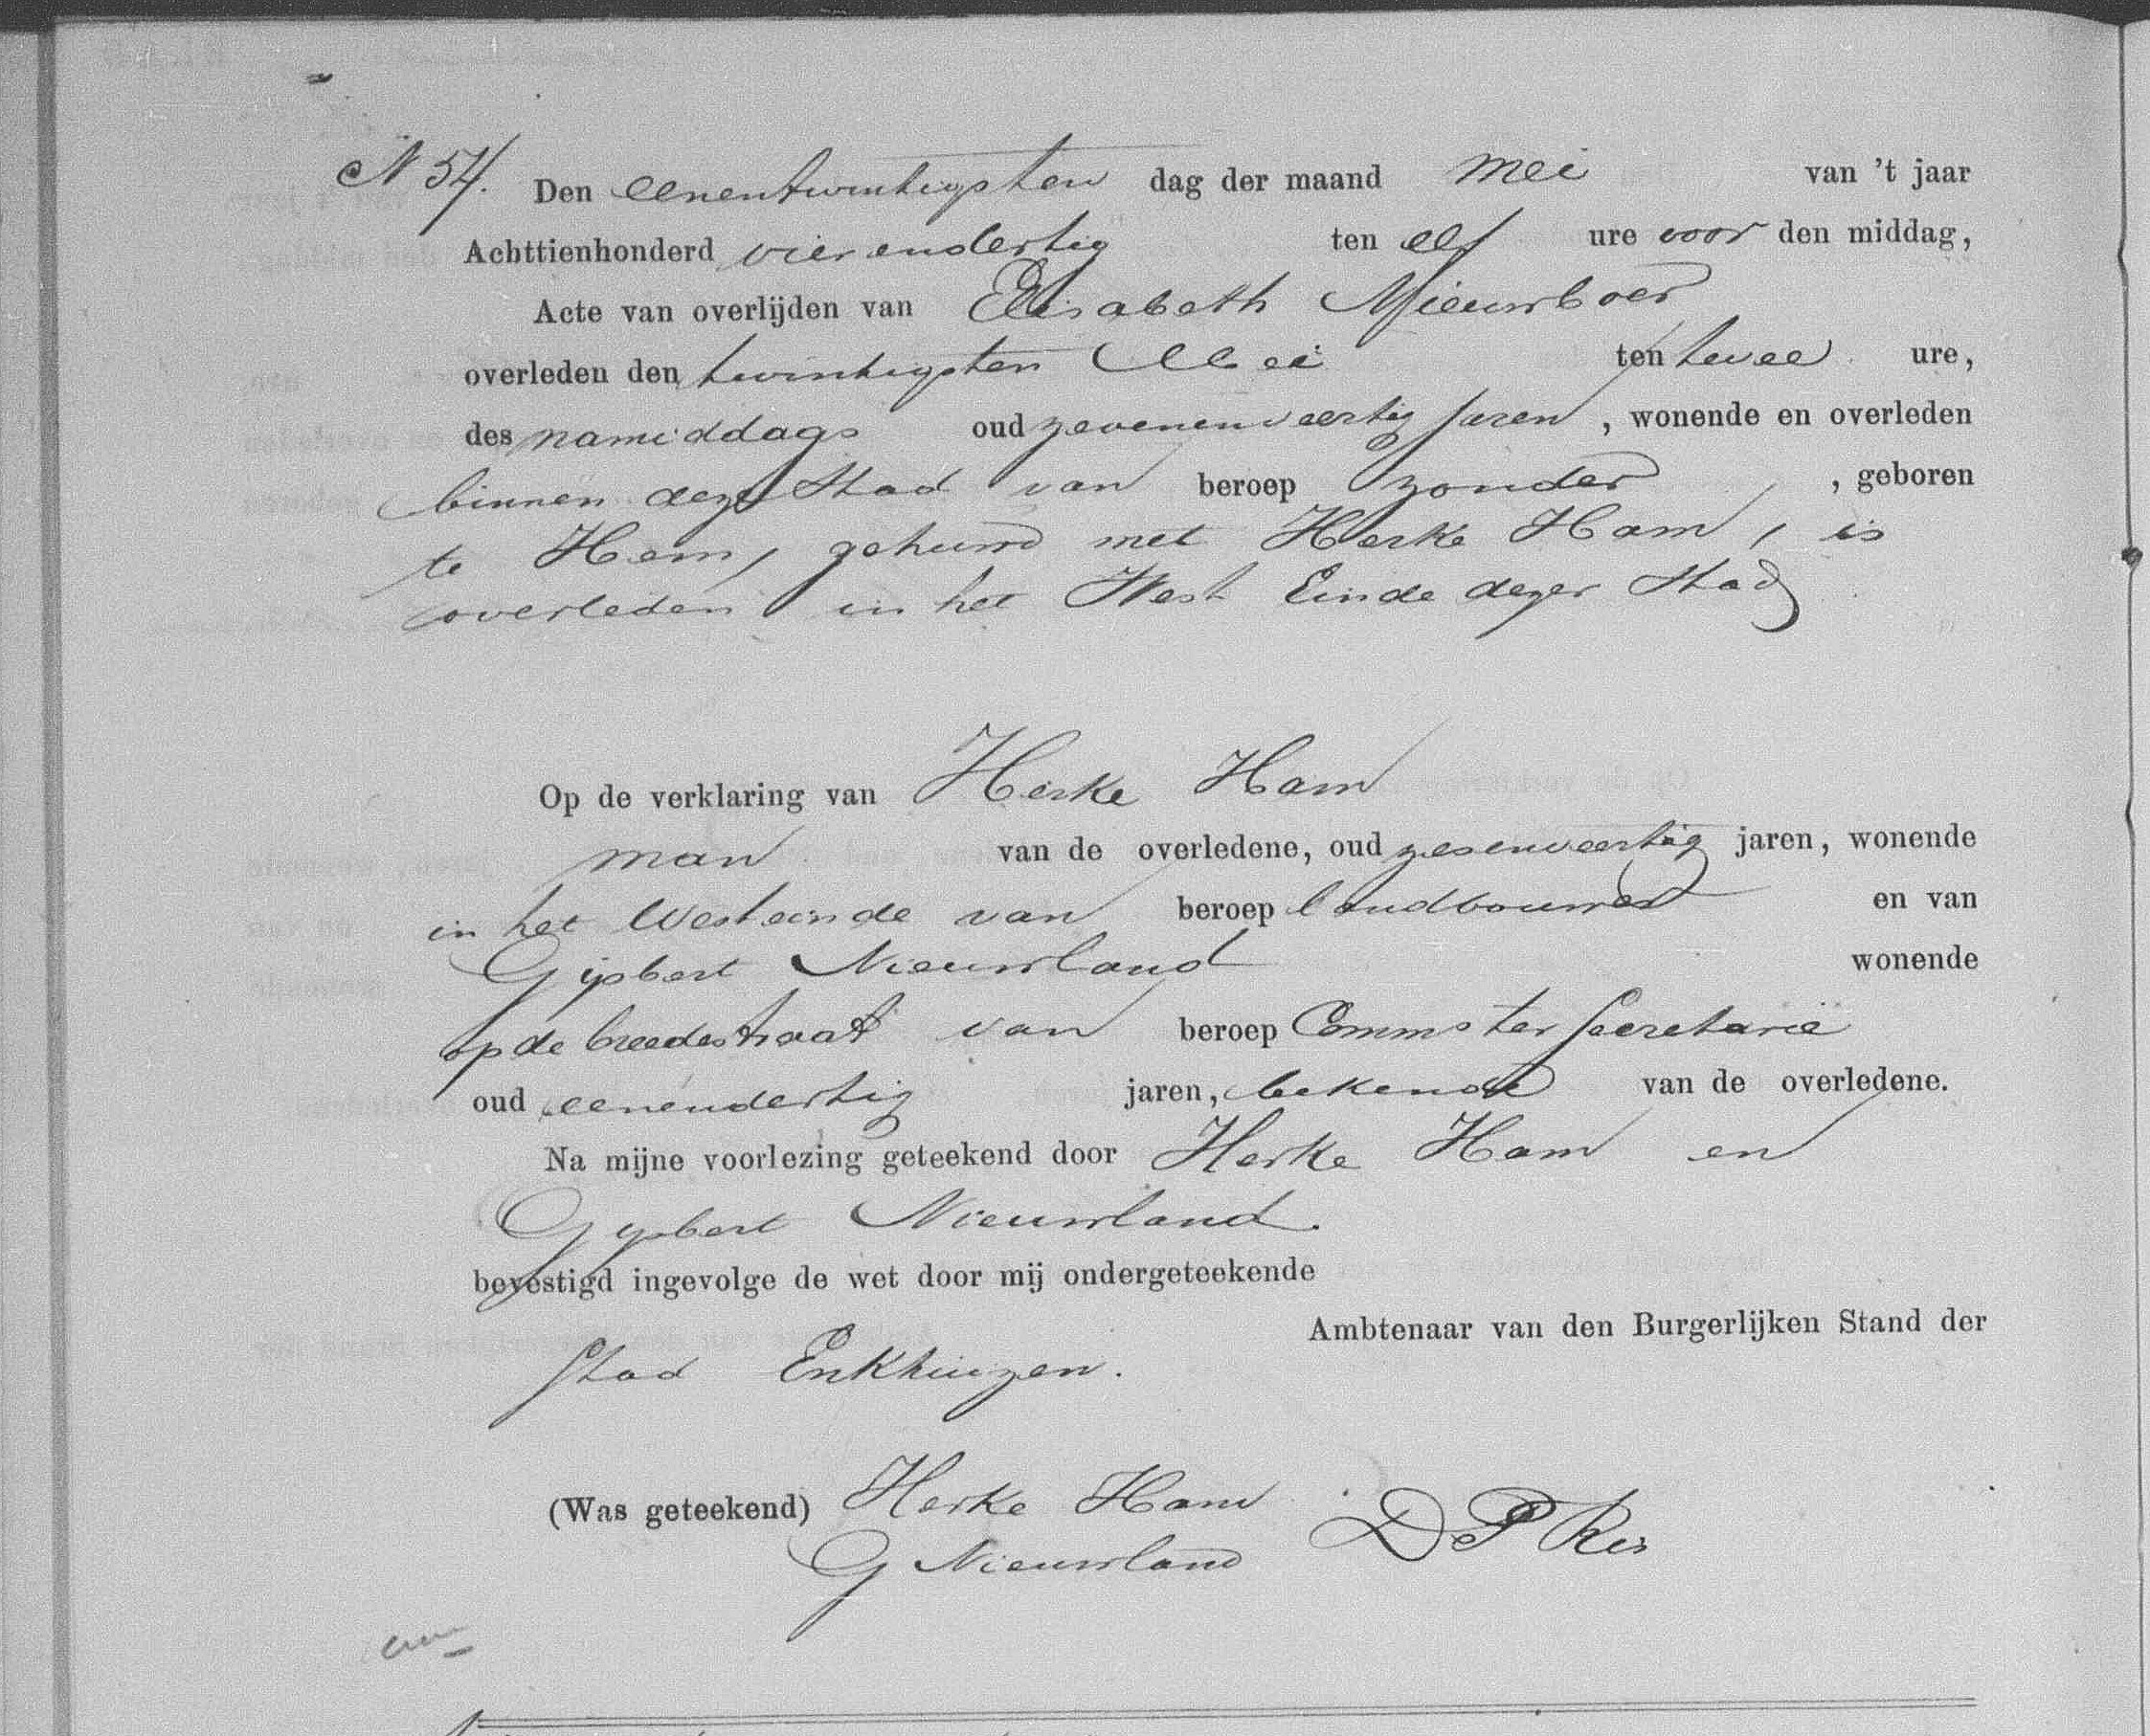 N 54. Den eenentwintigsten dag der maand Mei van 't jaar
Achttienhonderd vierendertig ten elf ure voor den middag,
Acte van overlijden van Elisabeth Nieuwboer
overleden den twintigsten Mei ten twee ure,
des namiddags oud zevenenveertig jaren, wonende en overleden
binnen deze Stad van beroep zonder, geboren
te Hem, gehuwd met Herke Ham, is
overleden in het West Einde dezer Stad
Op de verklaring van Herke Ham
man van de overledene, oud zesenveertig jaren, wonende
in het Westeinde van beroep landbouwer en van
Gijsbert Nieuwland wonende
op de breedestraat van beroep Comms ter Secretarie
oud eenendertig jaren, bekende van de overledene.
Na mijne voorlezing geteekend door Herke Ham en
Gysbert Nieuwland.
bevestigd ingevolge de wet door mij ondergeteekende
Ambtenaar van den Burgerlijken Stand der
Stad Enkhuizen.
(Was geteekend) Herke Ham
G Nieuwland D P